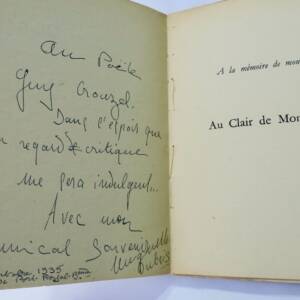 Au Poëte
Guy Crouzel.
Dans l'espoir que
regard critique
me sera indulgent...
Avec mon
amical Souvenir
1935
A la mémoire de mon
Au Clair de Mon